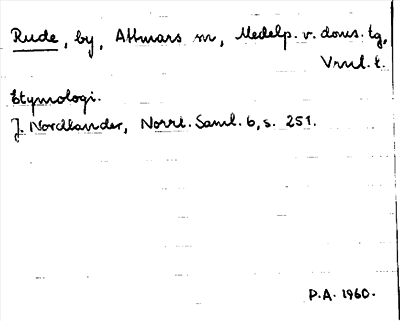 Rude, by, Attmars sn, Medelp. v. doms. tg,
Vnrl. l.
Etymologi.
J. Nordlander, Norrl. Saml. 6, s. 251.
P.A. 1960.